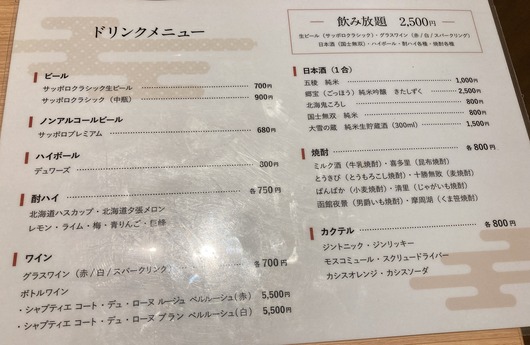 ドリンクメニュー
飲み放題 2,500円
生ビール（サッポロクラシック）・グラスワイン（赤/白/スパークリング）
日本酒（国士無双）・ハイボール・酎ハイ各種・焼酎各種
ビール
サッポロクラシック生ビール 700円
サッポロクラシック（中瓶） 900円
ノンアルコールビール
サッポロプレミアム 680円
ハイボール
デュワーズ 300円
酎ハイ 各750円
北海道ハスカップ・北海道夕張メロン
レモン・ライム・梅・青りんご・巨峰
ワイン
グラスワイン（赤/白/スパークリング） 各700円
ボトルワイン
・シャプティエ コート・デュ・ローヌ ルージュ ベルルーシュ(赤) 5,500円
・シャプティエ コート・デュ・ローヌ ブラン ベルルーシュ(白) 5,500円
日本酒（1合）
五稜 純米 1,000円
郷宝（ごっほう）純米吟醸 きたしずく 2,500円
北海鬼ころし 800円
国士無双 純米 800円
大雪の蔵 純米生貯蔵酒（300ml） 1,500円
焼酎 各800円
ミルク酒（牛乳焼酎）・喜多里（昆布焼酎）
とうきび（とうもろこし焼酎）・十勝無敗（麦焼酎）
ばんぱか（小麦焼酎）・清里（じゃがいも焼酎）
函館夜景（男爵いも焼酎）・摩周湖（くま笹焼酎）
カクテル 各800円
ジントニック・ジンリッキー
モスコミュール・スクリュードライバー
カシスオレンジ・カシスソーダ